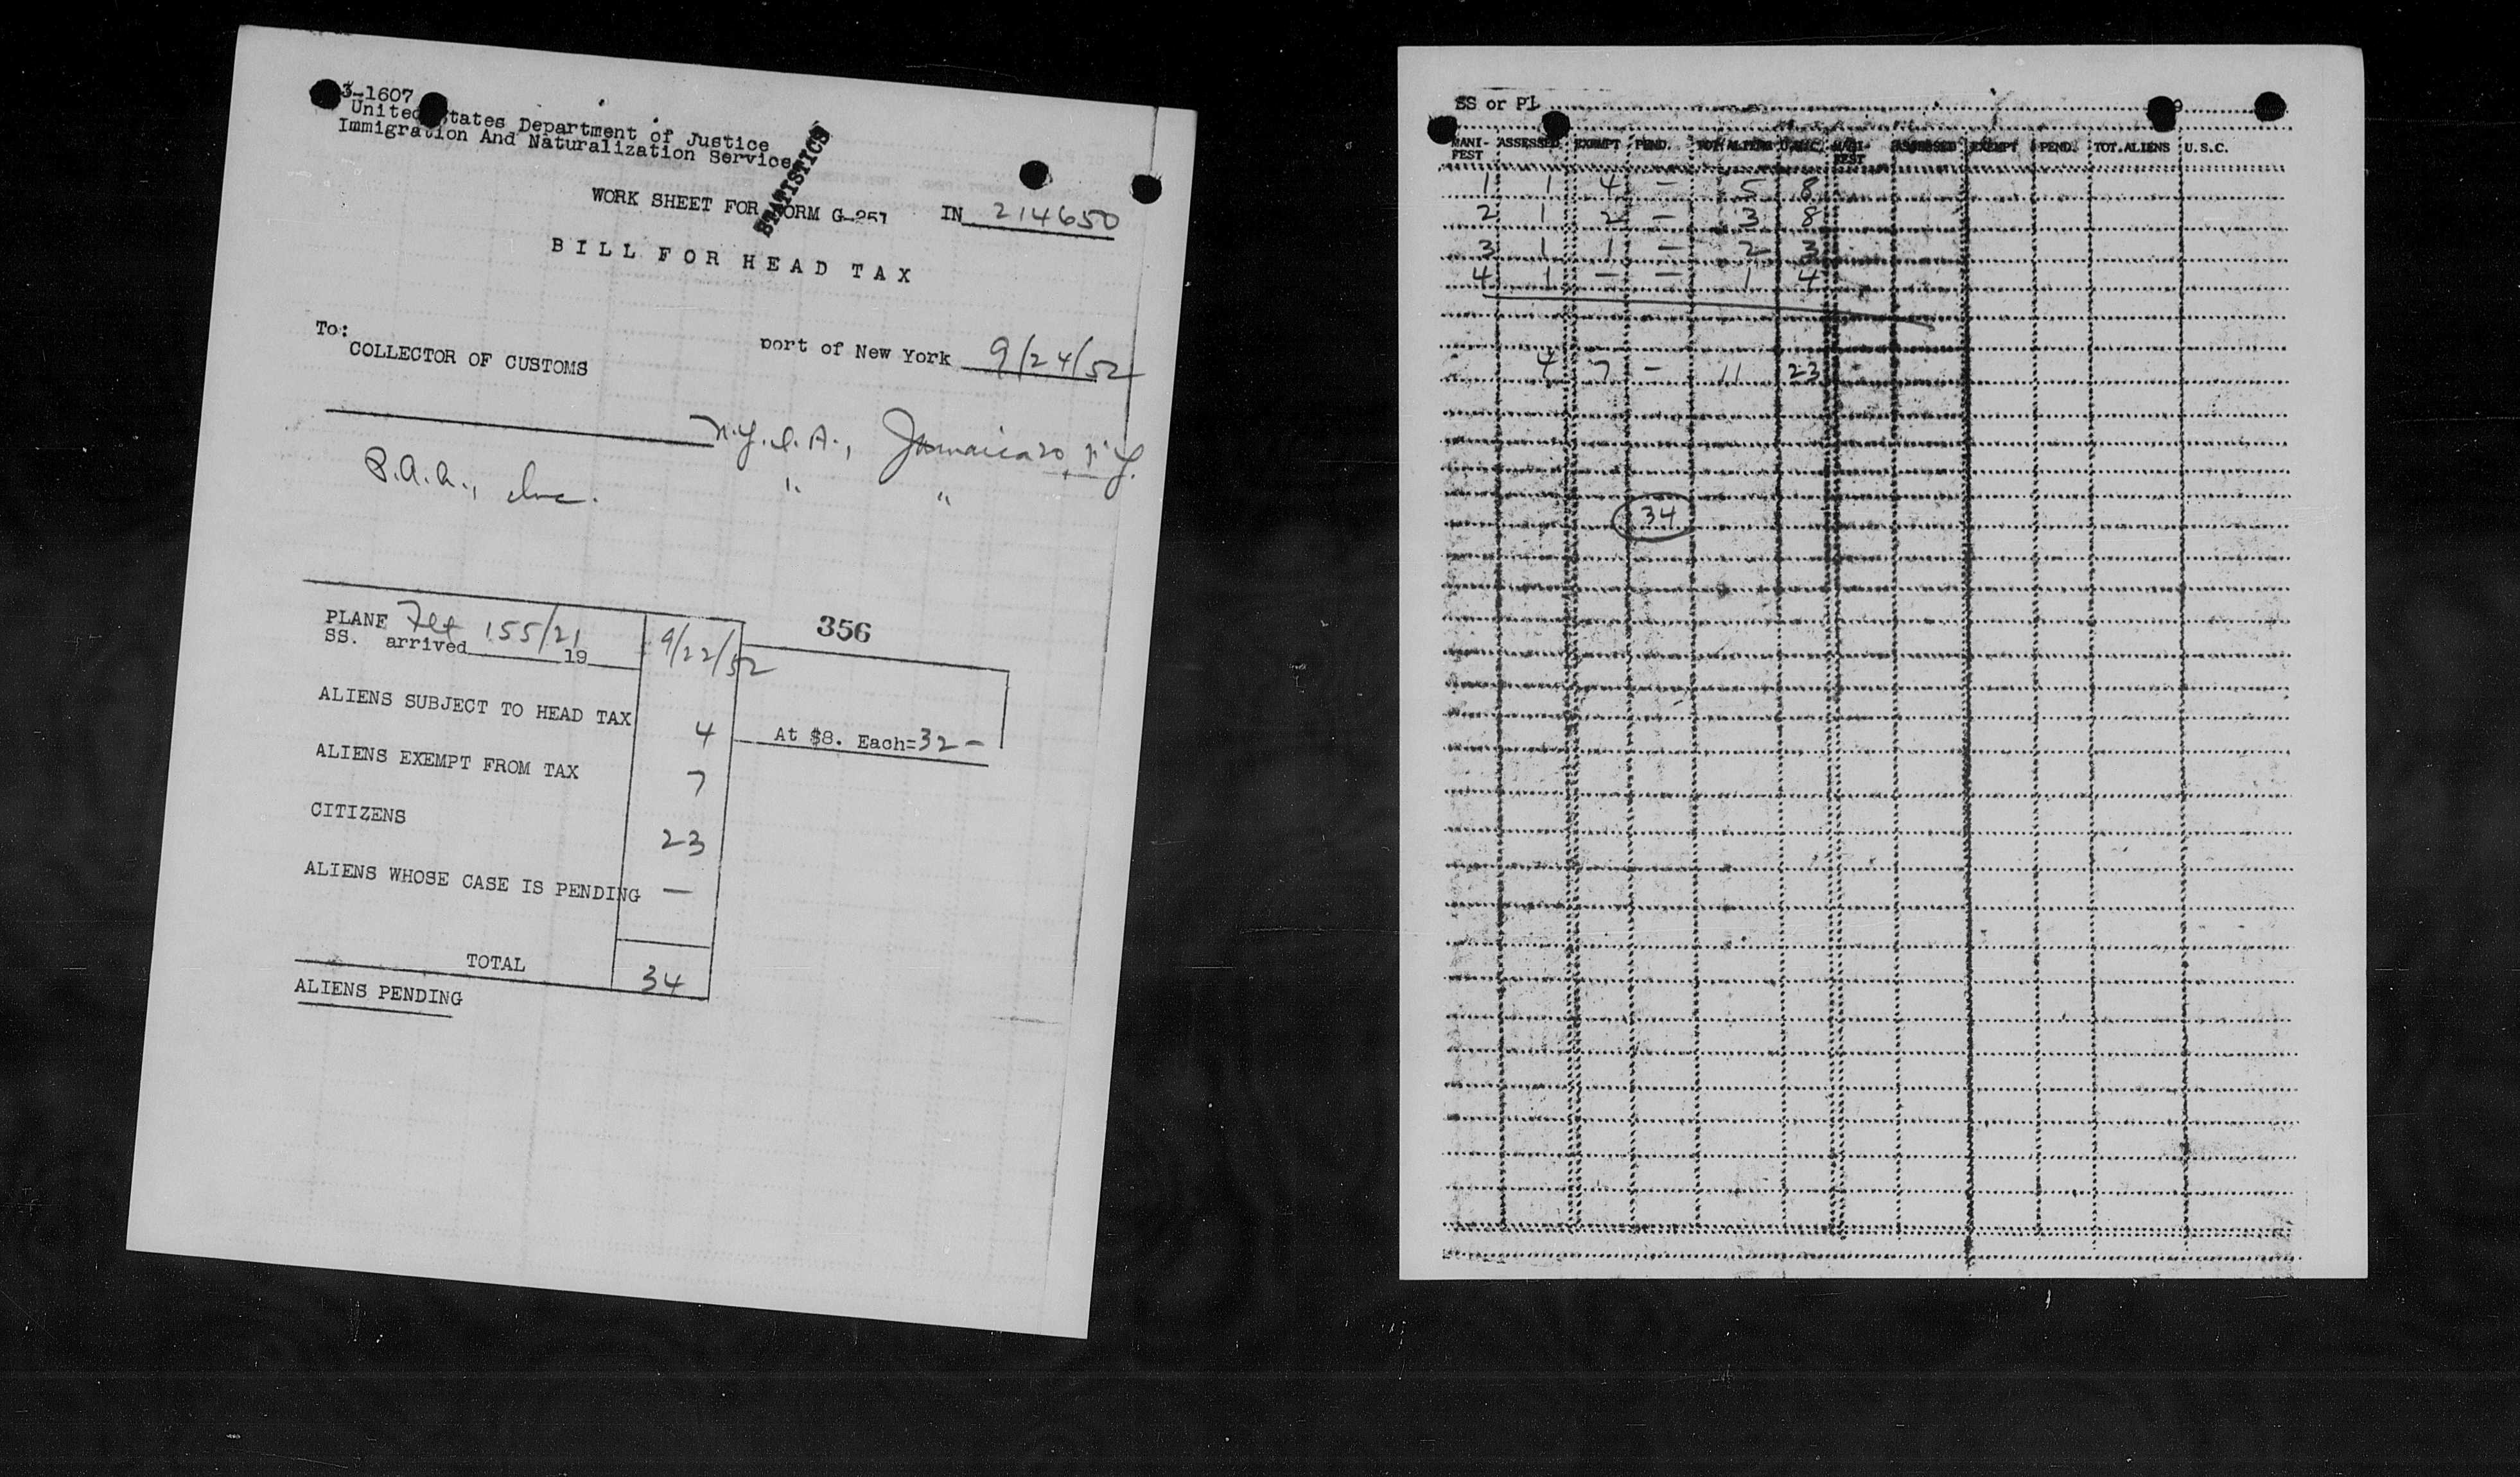 3-1607
United States Department of Justice
Immigration And Naturalization Service
STATISTICS
WORK SHEET FOR FORM G-251 IN 214650
BILL FOR HEAD TAX
To:
COLLECTOR OF CUSTOMS
port of New York 9/24/52
N.Y.I.A., Jamaica 20 N.Y.
P.A.A., Inc. " "
PLANE Flt 155/21
SS. arrived 19 9/22/52
356
ALIENS SUBJECT TO HEAD TAX 4 At $8. Each=32-
ALIENS EXEMPT FROM TAX 7
CITIZENS 23
ALIENS WHOSE CASE IS PENDING —
TOTAL 34
ALIENS PENDING
SS or Pl 9
MANI-FEST ASSESSED EXEMPT PEND. TOT.ALIENS U.S.C. MANI-FEST ASSESSED EXEMPT PEND. TOT.ALIENS U.S.C.
1 1 4 — 5 8
2 1 2 — 3 8
3 1 1 — 2 3
4 1 — — 1 4
4 7 — 11 23
34